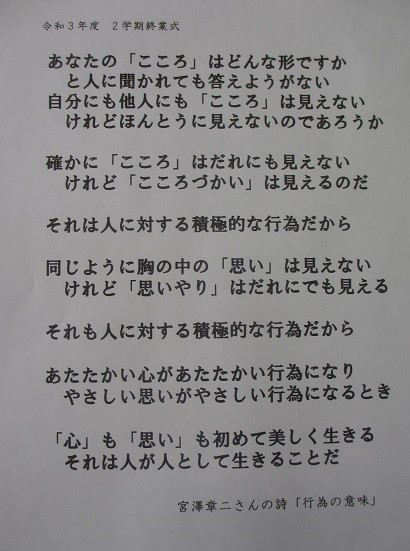 令和３年度　２学期終業式
あなたの「こころ」はどんな形ですか
と人に聞かれても答えようがない
自分にも他人にも「こころ」は見えない
けれどほんとうに見えないのであろうか
確かに「こころ」はだれにも見えない
けれど「こころづかい」は見えるのだ
それは人に対する積極的な行為だから
同じように胸の中の「思い」は見えない
けれど「思いやり」はだれにでも見える
それも人に対する積極的な行為だから
あたたかい心があたたかい行為になり
やさしい思いがやさしい行為になるとき
「心」も「思い」も初めて美しく生きる
それは人が人として生きることだ
宮澤章二さんの詩「行為の意味」